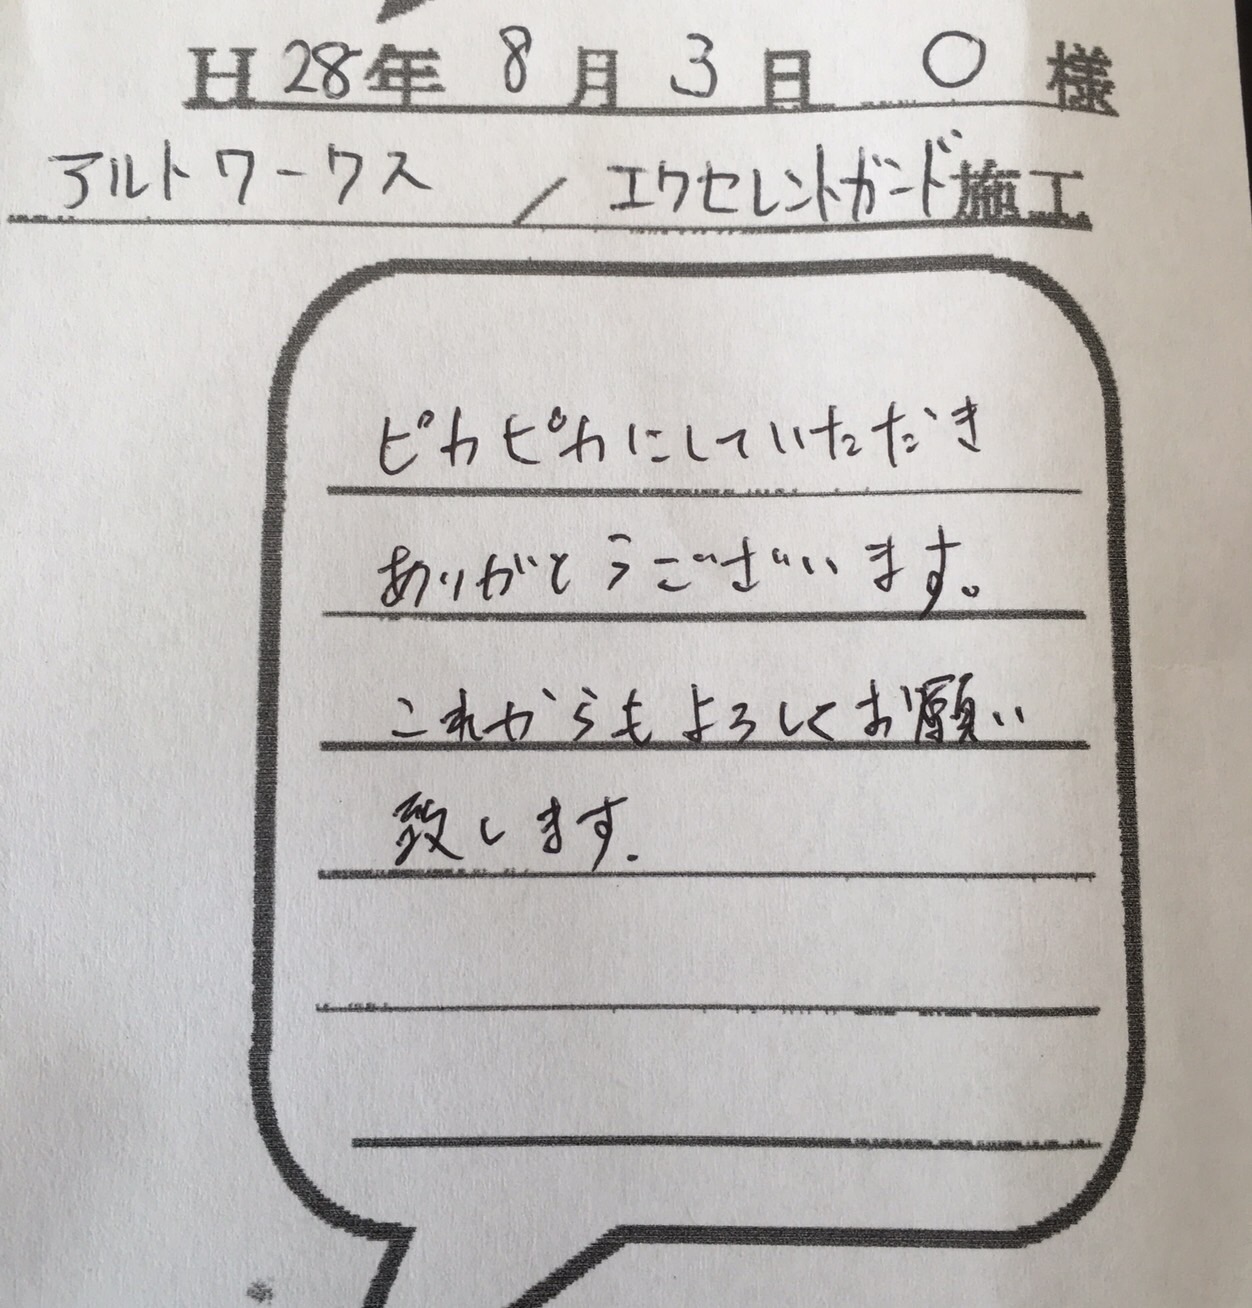 H28年 8月 3日 O様
アルトワークス / エクセレントガード施工
ピカピカにしていただき
ありがとうございます。
これからもよろしくお願い
致します.